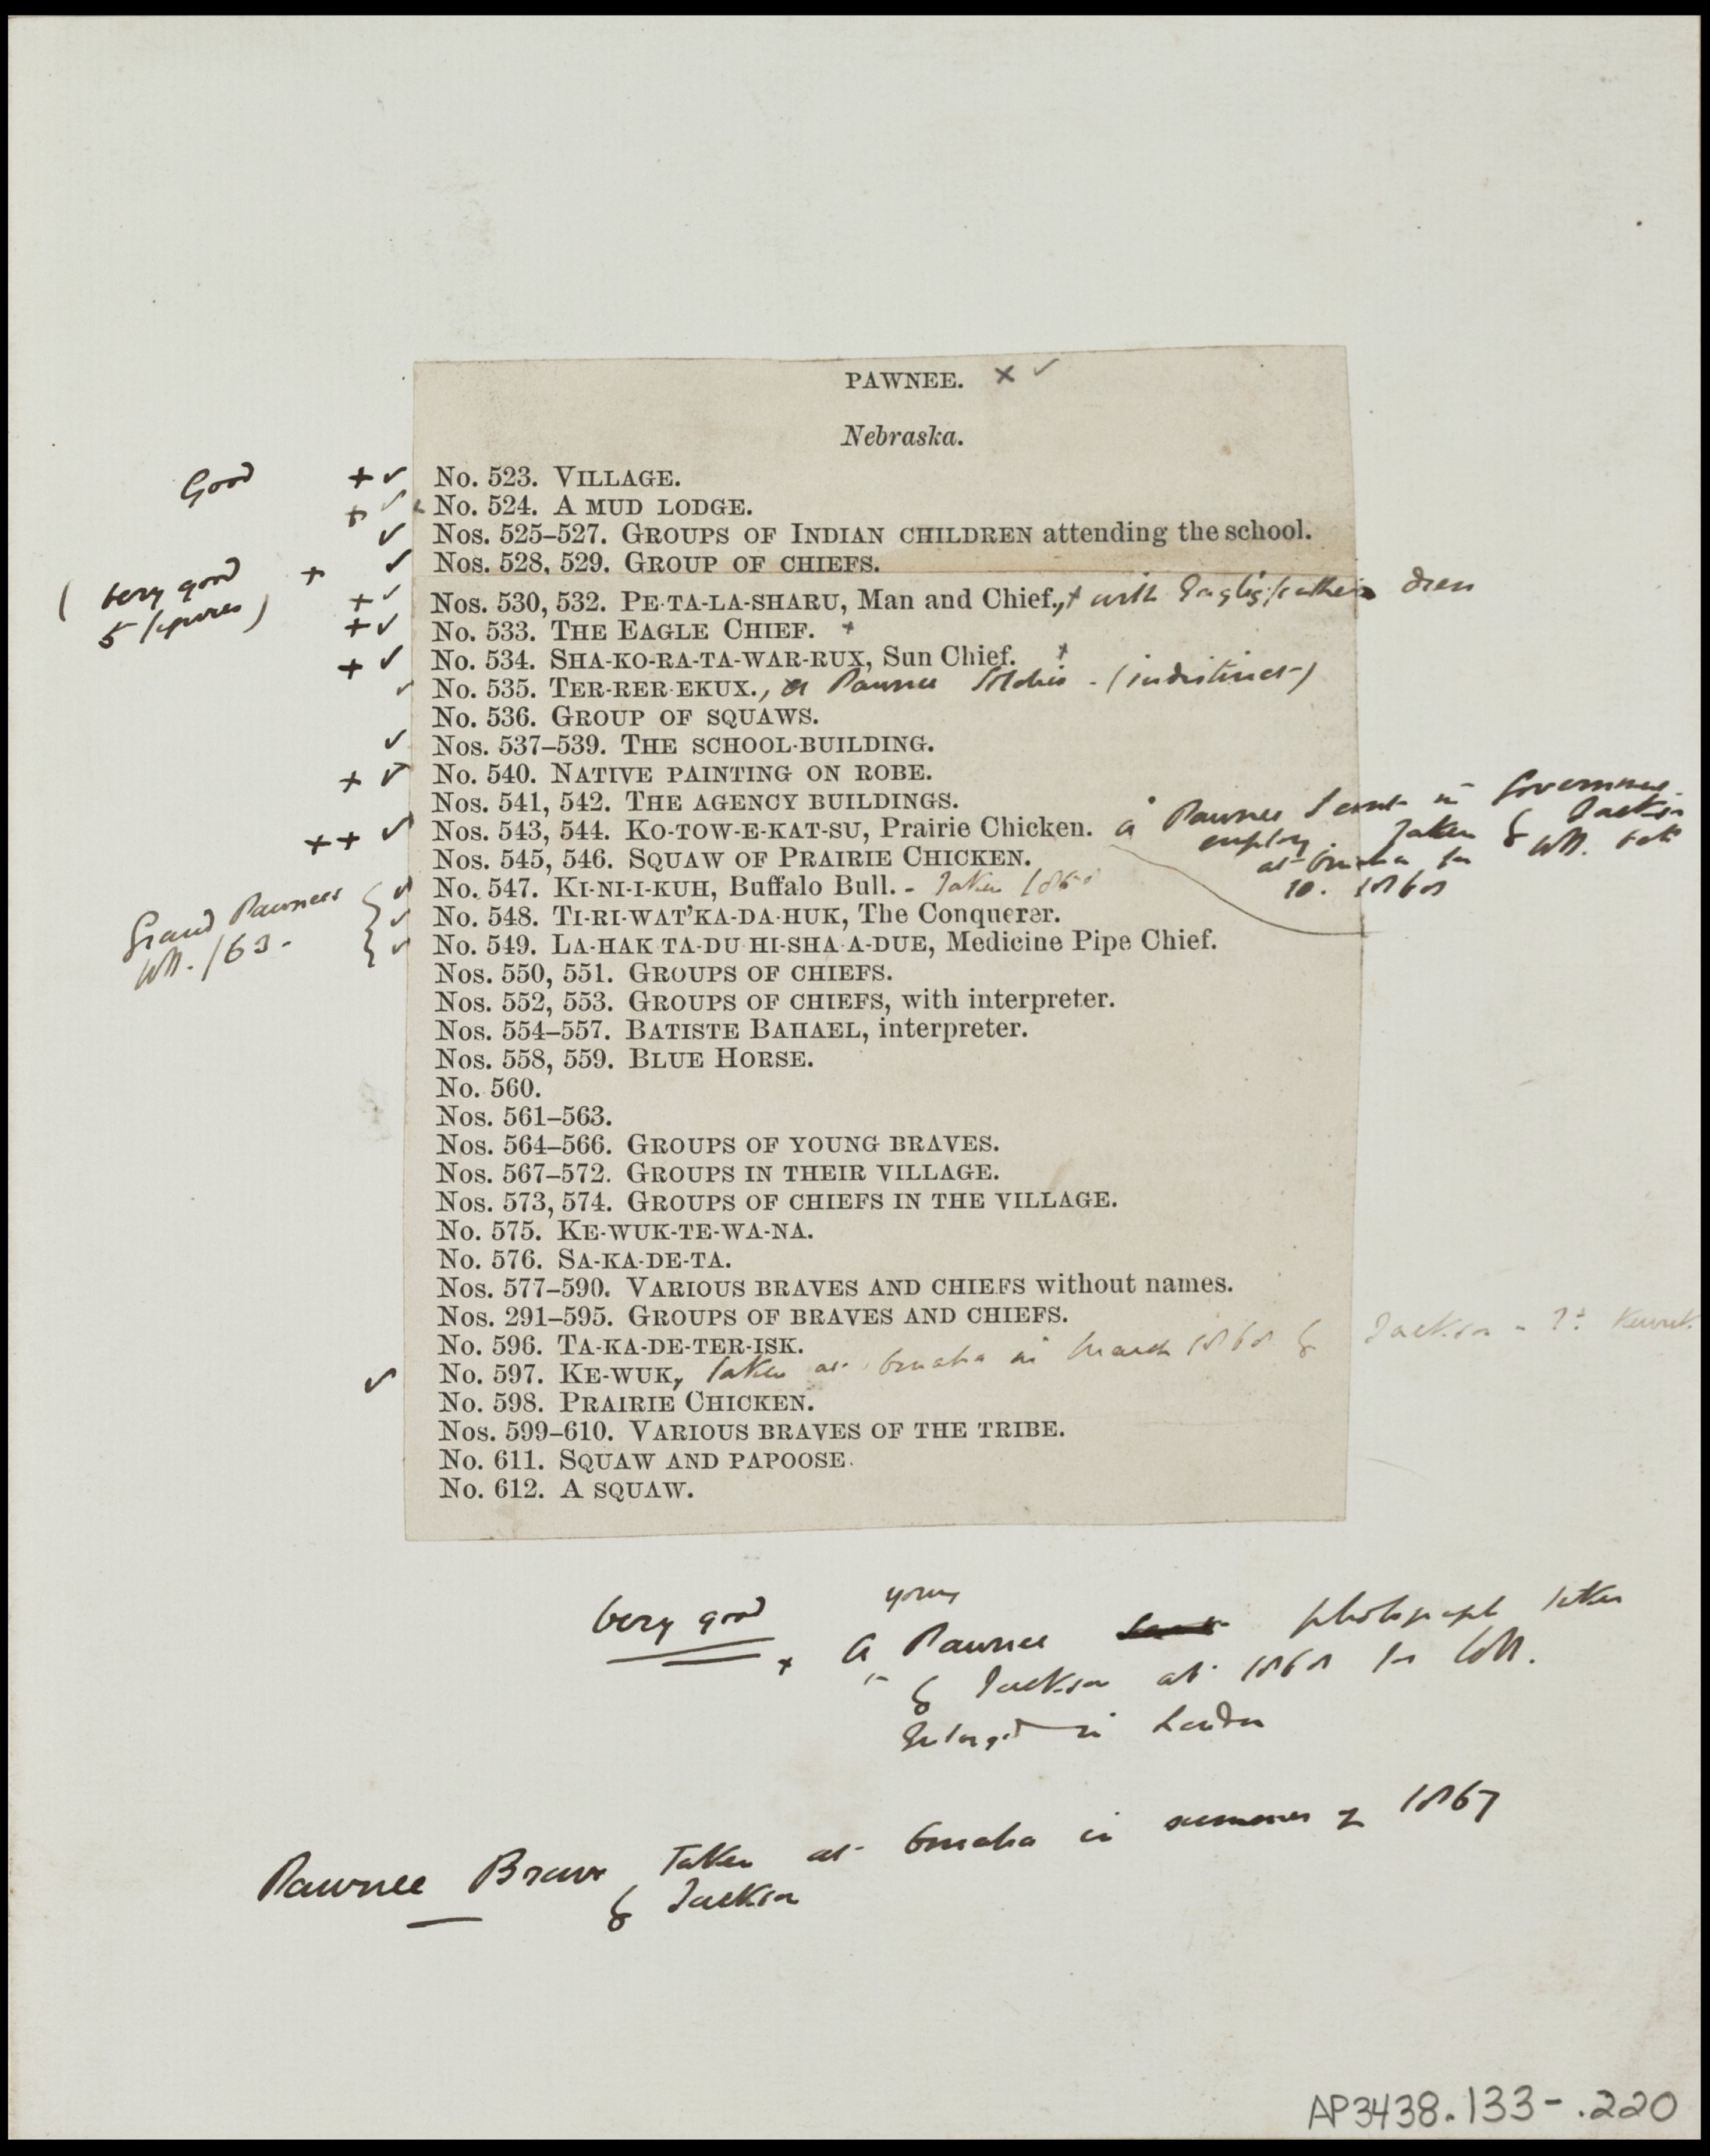 PAWNEE. x ✓
Nebraska.
Good + ✓ No. 523. VILLAGE.
+ ✓ No. 524. A MUD LODGE.
✓ Nos. 525–527. GROUPS OF INDIAN CHILDREN attending the school.
(very good 5 figures) + ✓ Nos. 528, 529. GROUP OF CHIEFS.
+ ✓ Nos. 530, 532. PE-TA-LA-SHARU, Man and Chief., + with Eagles feather dress
+ ✓ No. 533. THE EAGLE CHIEF. +
+ ✓ No. 534. SHA-KO-RA-TA-WAR-RUX, Sun Chief. +
✓ No. 535. TER-RER-EKUX., a Pawnee Soldier - (indistinct)
No. 536. GROUP OF SQUAWS.
✓ Nos. 537–539. THE SCHOOL-BUILDING.
+ ✓ No. 540. NATIVE PAINTING ON ROBE.
Nos. 541, 542. THE AGENCY BUILDINGS.
+ + ✓ Nos. 543, 544. KO-TOW-E-KAT-SU, Prairie Chicken.
a Pawnee Scout in Government
employ. Taken by Jackson
at Omaha for WB.
10. 1868
Nos. 545, 546. SQUAW OF PRAIRIE CHICKEN.
Grand Pawnees
/63-
✓ No. 547. KI-NI-I-KUH, Buffalo Bull. - Taken 1868
✓ No. 548. TI-RI-WAT'KA-DA-HUK, The Conquerer.
✓ No. 549. LA-HAK TA-DU-HI-SHA-A-DUE, Medicine Pipe Chief.
Nos. 550, 551. GROUPS OF CHIEFS.
Nos. 552, 553. GROUPS OF CHIEFS, with interpreter.
Nos. 554–557. BATISTE BAHAEL, interpreter.
Nos. 558, 559. BLUE HORSE.
No. 560.
Nos. 561–563.
Nos. 564–566. GROUPS OF YOUNG BRAVES.
Nos. 567–572. GROUPS IN THEIR VILLAGE.
Nos. 573, 574. GROUPS OF CHIEFS IN THE VILLAGE.
No. 575. KE-WUK-TE-WA-NA.
No. 576. SA-KA-DE-TA.
Nos. 577–590. VARIOUS BRAVES AND CHIEFS without names.
Nos. 291–595. GROUPS OF BRAVES AND CHIEFS.
No. 596. TA-KA-DE-TER-ISK.
✓ No. 597. KE-WUK, taken at Omaha in March 1868 by Jackson -
No. 598. PRAIRIE CHICKEN.
Nos. 599–610. VARIOUS BRAVES OF THE TRIBE.
No. 611. SQUAW AND PAPOOSE.
No. 612. A SQUAW.
very good + a young Pawnee photograph taken
by Jackson at 1868 for
Enlarged in London
Pawnee Brave Taken at Omaha in summer of 1867
by Jackson
AP3438.133-.220